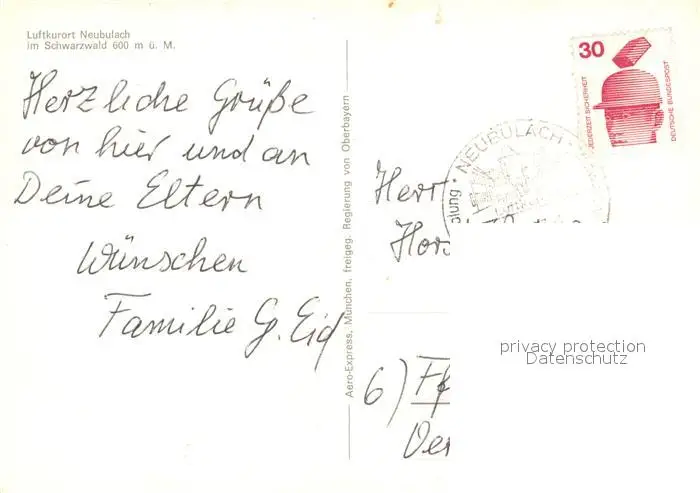 Luftkurort Neubulach
im Schwarzwald 600 m ü. M.
Herzliche Grüße
von hier und an
Deine Eltern
Wünschen
Familie G. Eid
Aero-Express, München, freigeg. Regierung von Oberbayern
30
JEDERZEIT SICHERHEIT
DEUTSCHE BUNDESPOST
NEUBULACH
Herr
Hors
6) Ff
privacy protection
Datenschutz